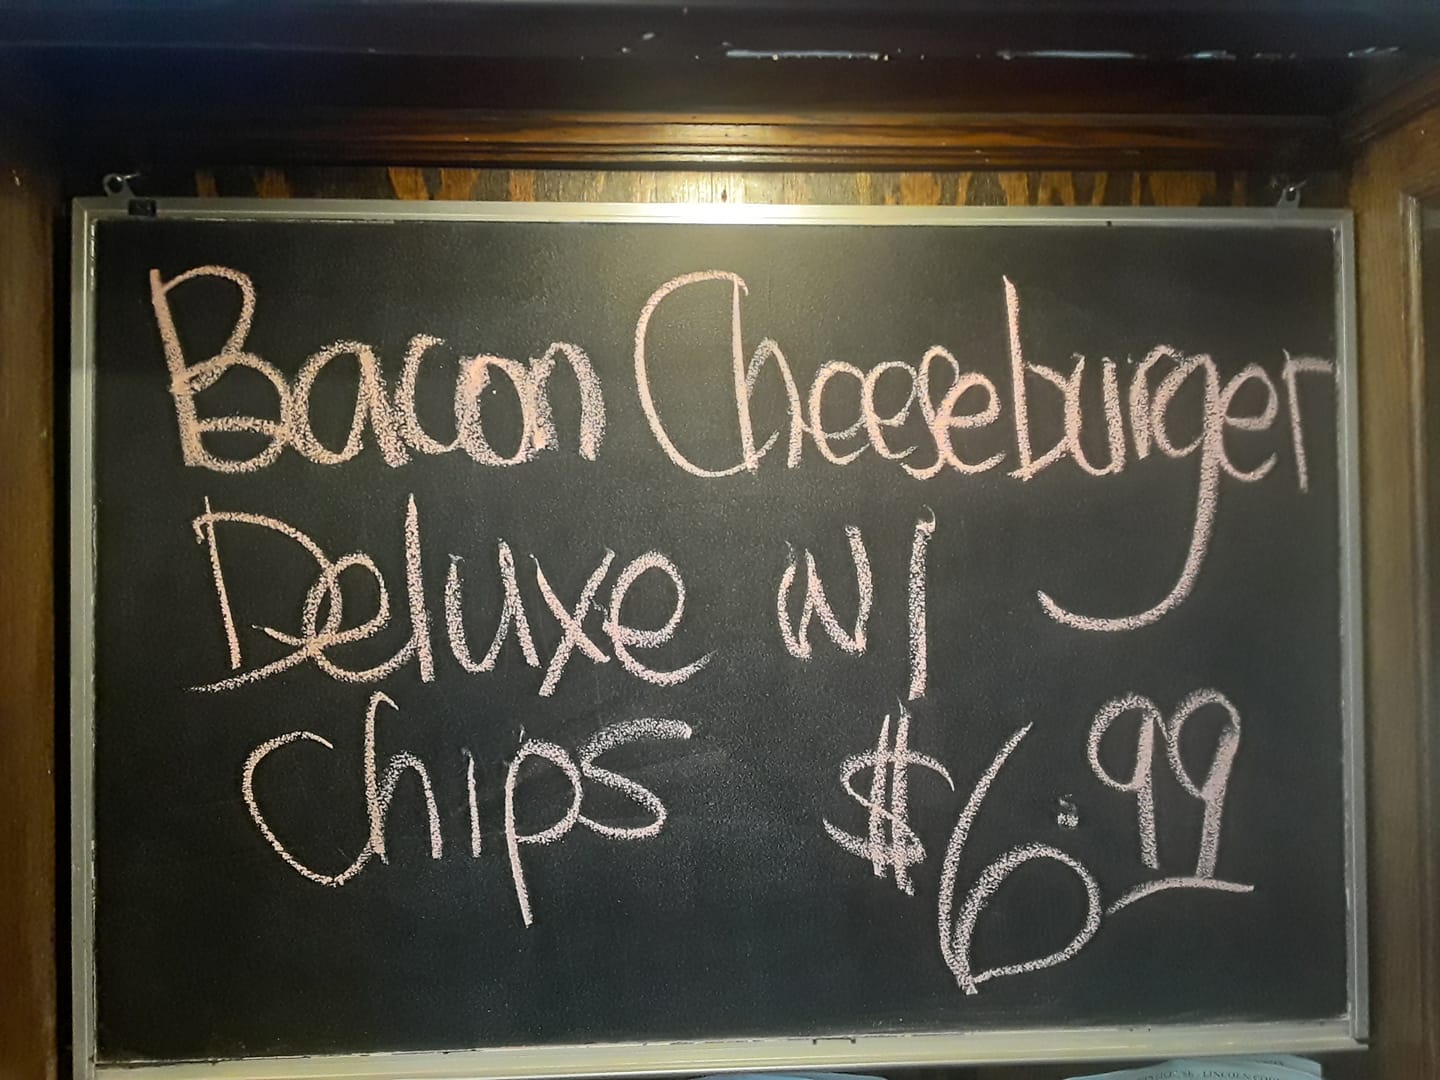 Bacon Cheeseburger
Deluxe w/
chips $6.99